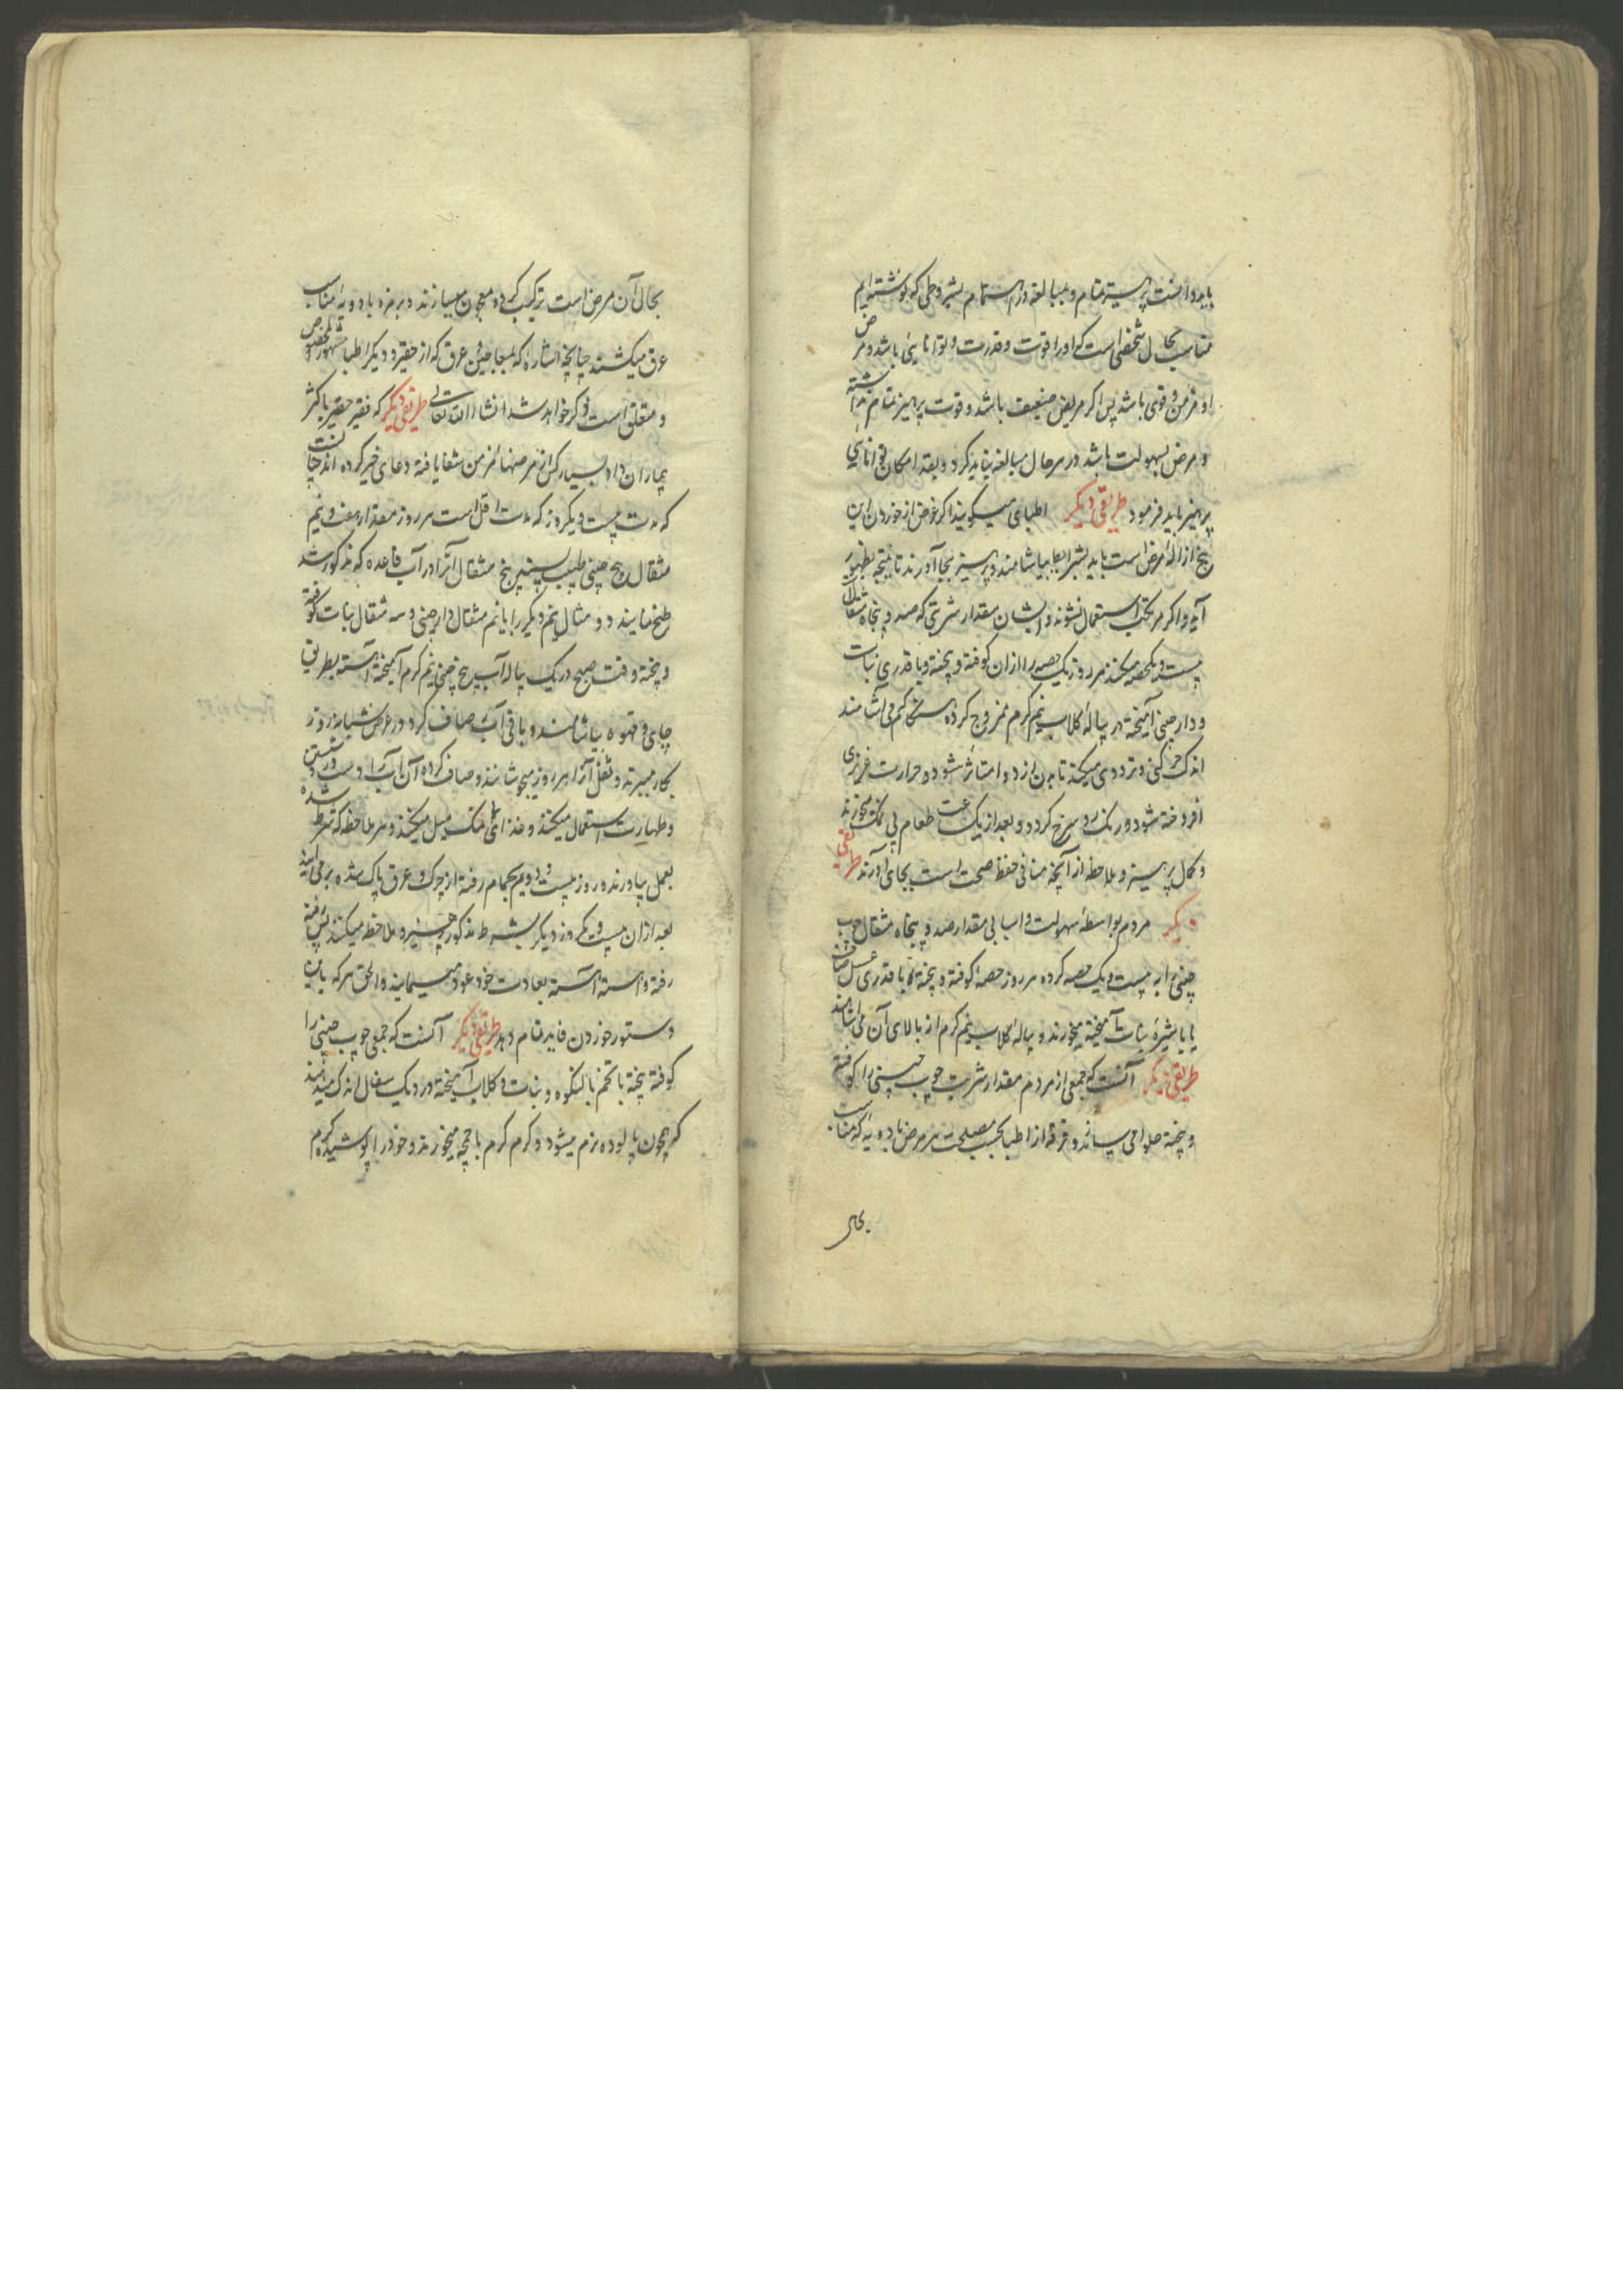 باید دانست پرهیز تمام و مبالغه در اهتمام بشروطی که نوشته‌ایم
مناسب بحال شخصی است که او را قوت و قدرت و توانایی باشد و مرض
او مزمن و قوی باشد پس اگر مریض ضعیف باشد و قوت پرهیز تمام نداشته
و مرض بسهولت باشد در هر حال مبالغه نباید کرد و بقدر امکان توانایی
پرهیز باید فرمود طریقی دیگر اطبای میگویند اگر غرض از خوردن این
بیخ ازالهٔ مرض است باید بشرایط بیاشامند و پرهیز بجا آورند تا نتیجه بظهور
آید و اگر مرتکب استعمال نشوند و ایشان مقدار شربتی که صد و پنجاه مثقال
بیست و یکحصه میکنند هر روز یک حصه را از آن کوفته و پخته و با قدری نبات
و دارچینی آمیخته در پیالهٔ گلاب نیم گرم ممزوج کرده می‌آشامند
اندک حرکتی و ترددی میکنند تا بدن از دوا متاثر شود و حرارت غریزی
افروخته شود و رنگ رو سرخ گردد و بعد از یک ساعت طعام بی نمک میخورند
و کمال پرهیز و ملاحظه از آنچه منافی حفظ صحت است بجای آورند طریقی
دیگر مردم بواسطهٔ سهولت و اسبابی مقدار صد و پنجاه مثقال چوب
چینی را به بیست و یک حصه کرده هر روز حصه کوفته و پخته با قدری عسل صاف
یا با شیرهٔ نبات آمیخته میخورند و پیالهٔ گلاب نیم گرم از بالای آن می‌آشامند
طریقی دیگر آنست که جمعی از مردم مقدار شربت چوب چینی را کوفته
و پخته حلوا می‌سازند و فرقهٔ از اطبا بحسب مصلحت هر مرض بادویه که مناسب
بحال
بحال آن مرض است ترکیب کرده معجون میسازند و برخی بادویهٔ مناسب
عرق میکشند چنانچه اشاره که بمعاجین و عرق که از حقیر و دیگر اطبا مشهور و مخصوص
و متعلق است ذکر خواهد شد انشاء الله تعالی طریقی دیگر که فقیر حقیر باکثر
بیماران داد بسیار کس از مرضهای مزمن شفا یافته دعای خیر کرده اند آنست
که مدت بیست و یکروز که مدت اقل است هر روز مقدار هفت و نیم
مثقال بیخ چینی طیب پنج مثقال آنرا در آب قاعده که مذکور شد
طبخ نمایند و دو مثقال نیم دیگر را با نیم مثقال دارچینی و سه مثقال نبات کوفته
و پخته وقت صبح در یک پیاله آب بیخ چینی نیم گرم آمیخته آهسته بطریق
چای و قهوه بیاشامند و باقی آب صاف کرد در عرض شبانروز
بکار میبرند و ثفل آنرا هر روز میجوشانند و صاف کرده آن آب را در دست و رو شستن
و طهارت استعمال میکنند و غذای بی نمک میل میکنند و هر ملاحظه که شرط شده
بعمل بیاورند و روز بیست و دویم بحمام رفته از چرک و عرق پاک شده برمی‌آیند
بعد از آن بیست و یکروز دیگر بشرط مذکور پرهیز و ملاحظه میکنند پس رفته
رفته و آهسته آهسته بعادت خود عود مینمایند و الحق هر که باین
دستور خوردن فایده تمام دهد طریقی دیگر آنست که جمعی چوب چینی را
کوفته پخته با تخم بالنگوه و نبات و گلاب آمیخته در دیک سفال اندک میدانند
که همچون پالوده نرم میشود و گرم گرم با چمچه میخورند و خود را پوشیده گرم